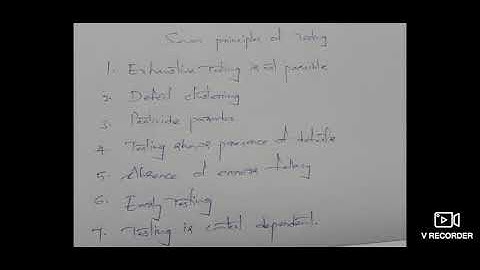 Seven principles of Testing
1. Exhaustive Testing is not possible
2. Defect clustering
3. Pesticide paradox
4. Testing shows presence of defects
5. Absence of errors fallacy
6. Early Testing
7. Testing is context dependent.
V RECORDER